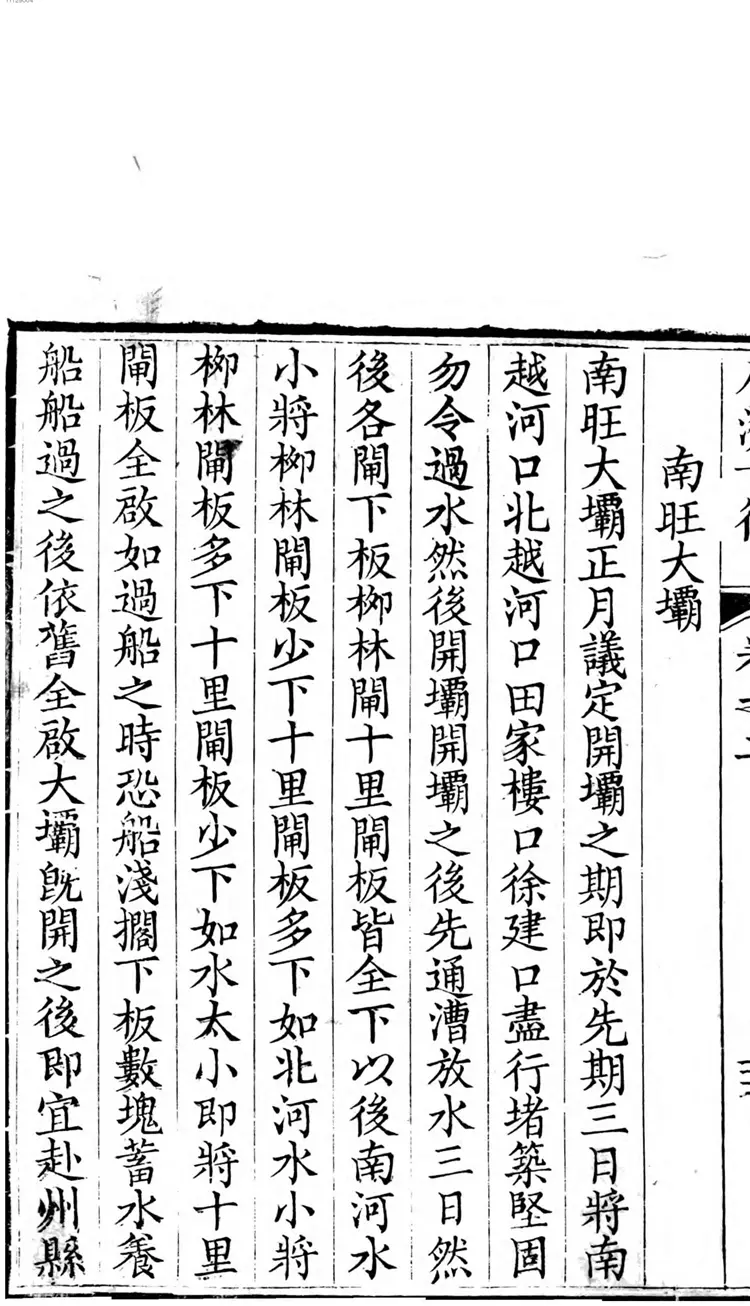 南旺大壩
南旺大壩正月議定開壩之期即於先期三日將南
越河口北越河口田家樓口徐建口盡行堵築堅固
勿令過水然後開壩開壩之後先通漕放水三日然
後各閘下板栁林閘十里閘板皆全下以後南河水
小將栁林閘板少下十里閘板多下如北河水小將
栁林閘板多下十里閘板少下如水太小即將十里
閘板全啟如過船之時恐船淺擱下板數塊蓄水養
船船過之後依舊全啟大壩旣開之後即宜赴州縣